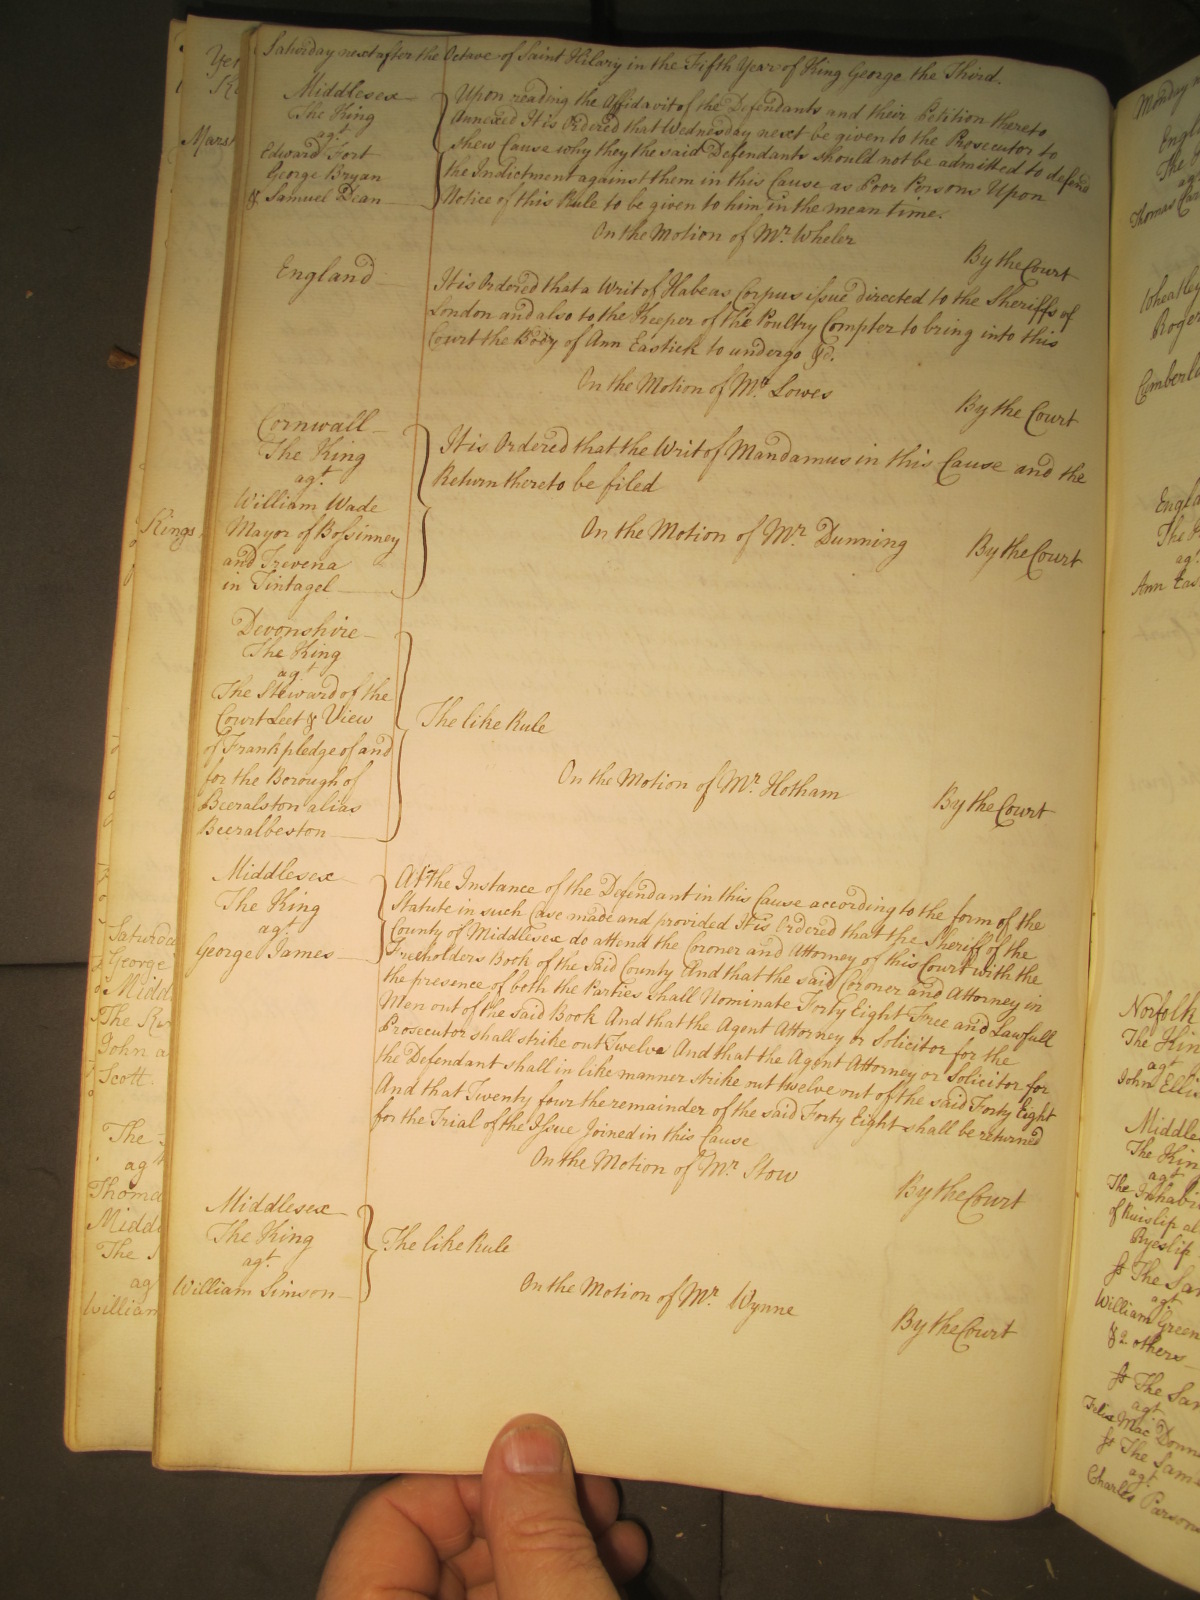 Saturday next after the Octave of Saint Hilary in the Fifth Year of King George the Third.
Middlesex
The King
agt.
Edward Fort
George Bryan
& Samuel Dean
Upon reading the Affidavit of the Defendants and their Petition thereto
Annexed It is Ordered that Wednesday next be given to the Prosecutor to
shew Cause why they the said Defendants should not be admitted to defend
the Indictment against them in this Cause as Poor Persons Upon
Notice of this Rule to be given to him in the mean time.
On the Motion of Mr. Wheler
By the Court
England
It is Ordered that a Writ of Habeas Corpus issue directed to the Sheriffs of
London and also to the Keeper of the Poultry Compter to bring into this
Court the Body of Ann Eastick to undergo &c.
On the Motion of Mr. Lowes
By the Court
Cornwall
The King
agt.
William Wade
Mayor of Bossinney
and Trevena
in Tintagel
It is Ordered that the Writ of Mandamus in this Cause and the
Return thereto be filed
On the Motion of Mr. Dunning
By the Court
Devonshire
The King
agt
The Steward of the
Court Leet & View
of Frankpledge of and
for the Borough of
Beeralston alias
Beeralbeston
The like Rule
On the Motion of Mr. Hotham
By the Court
Middlesex
The King
agt.
George James
At the Instance of the Defendant in this Cause according to the form of the
Statute in such Case made and provided It is Ordered that the Sheriff of the
County of Middlesex do attend the Coroner and Attorney of this Court with the
Freeholders Book of the said County And that the said Coroner and Attorney in
the presence of both the Parties shall Nominate Forty Eight Free and Lawfull
Men out of the said Book And that the Agent Attorney or Solicitor for the
Prosecutor shall strike out Twelve And that the Agent Attorney or Solicitor for
the Defendant shall in like manner strike out twelve out of the said Forty Eight
And that Twenty four the remainder of the said Forty Eight shall be returned
for the Trial of the Issue Joined in this Cause
On the Motion of Mr. Stow
By the Court
Middlesex
The King
agt.
William Simson
The like Rule
On the Motion of Mr. Wynne
By the Court
Kings
Saturda
George
Midd
The Ki
John a
Scott
The
agt
Thoma
Midd
The
ag
William
Monday
Engl
The
Thomas
Wheatley
Roger
Cumberla
Engla
The
agt
Ann Eas
Norfolk
The Kin
agt
John Elli
Middle
The Kin
agt
The Inhabi
of Ruislip al
Ryeslip
The Sam
agt
William Green
& 2 others
The Sam
agt
Felix Mac Donn
The Sam
agt
Charles Parson